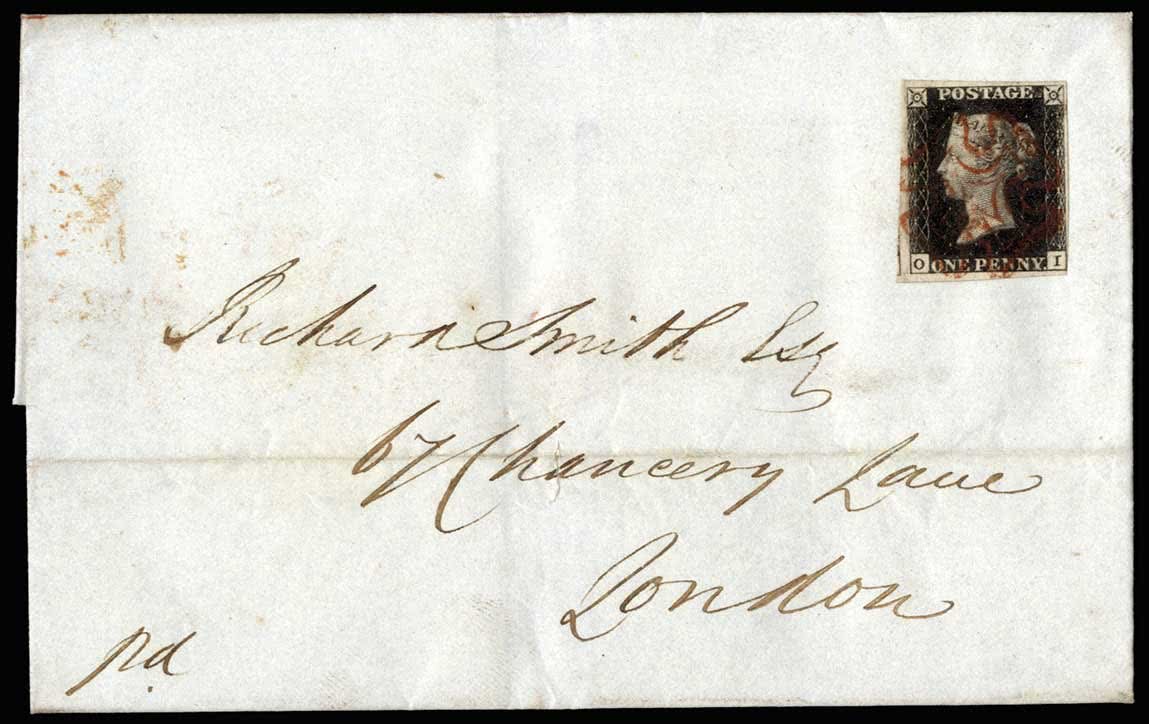 POSTAGE
O ONE PENNY. I
Richard Smith Esq
67 Chancery Lane
London
pd